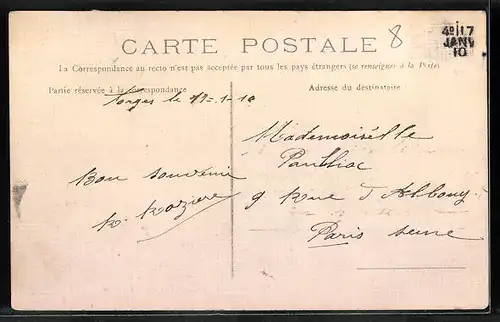 CARTE POSTALE
8
4e 17
JANV
10
La Correspondance au recto n'est pas acceptée par tous les pays étrangers (se renseigner à la Poste)
Partie réservée à la correspondance
Adresse du destinataire
le 17-1-10
Mademoiselle
Bon souvenir
9 Rue d'Albouy
Paris Seine